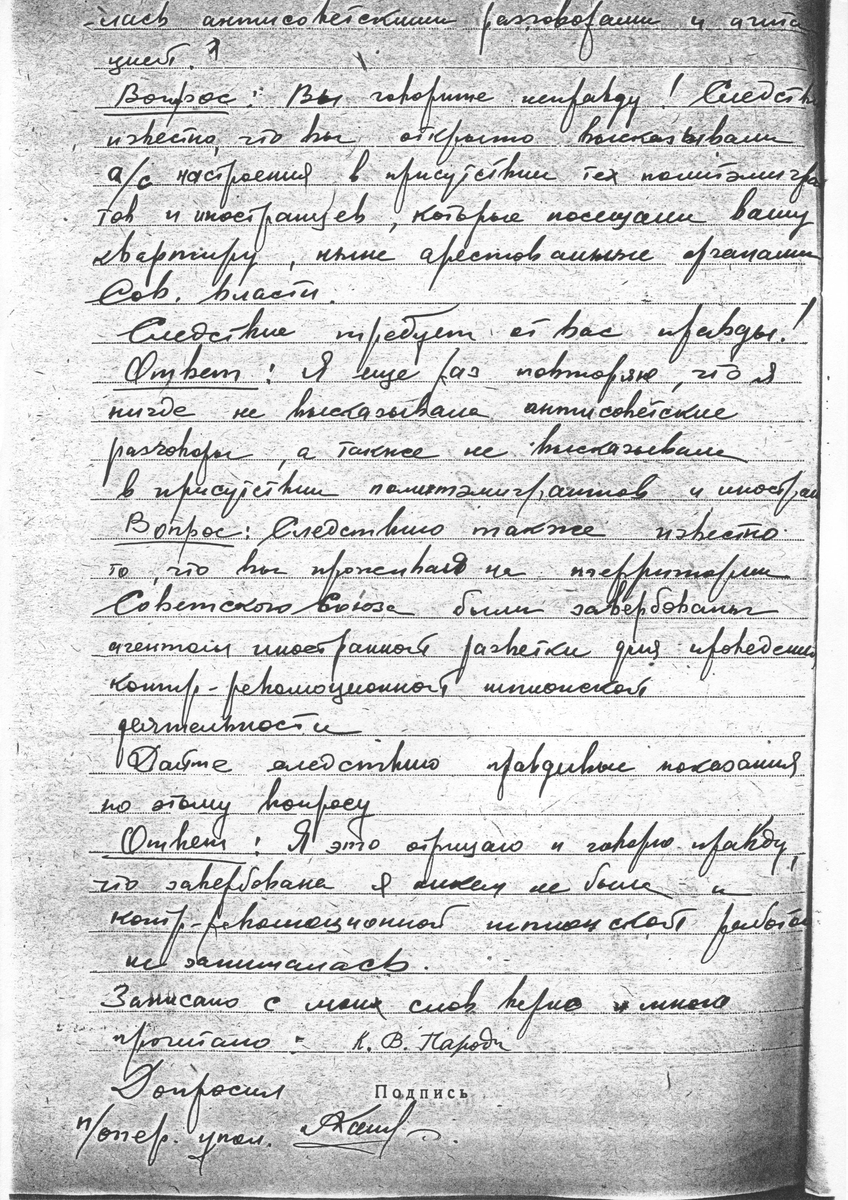 -лась антисоветскими разговорами и агита
цией.
Вопрос: Вы говорите неправду! Следств
известно, что вы открыто высказывали
а/с настроения в присутствии тех политэмигра
тов и иностранцев, которые посещали вашу
квартиру, ныне арестованные органами
Сов. власти.
Следствие требует от вас правды!
Ответ: Я еще раз повторяю, что я
нигде не высказывала антисоветские
разговоры, а также не высказывала
в присутствии политэмигрантов и иностран
Вопрос: Следствию также известно
то, что вы проживая на территории
Советского Союза были завербованы
агентом иностранной разветки для проведения
контр-революционной шпионской
деятельности
Дайте следствию правдивые показания
по этому вопросу
Ответ: Я это отрицаю и говорю правду,
что завербована я никем не была и
контр-революционной шпионской работой
не занималась.
Записано с моих слов верно и мною
прочитано - К. В. Пароди
Допросил Подпись
п/опер. упол.